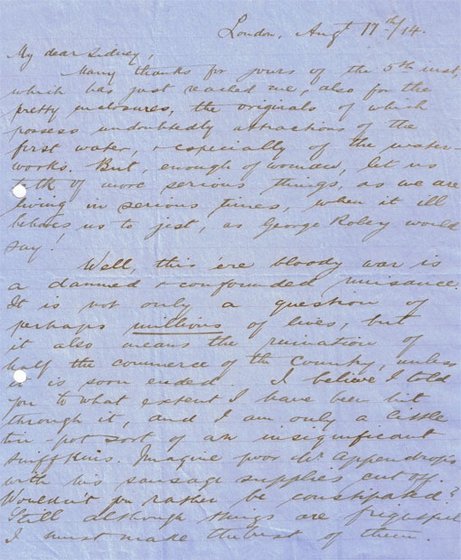 London, Augt 17th/14.
My dear Sidney,
Many thanks for yours of the 5th inst,
which has just reached me, also for the
pretty enclosures, the originals of which
possess undoubtedly attractions of the
first water, & especially of the water-
works. But, enough of women, let us
talk of more serious things, as we are
living in serious times, when it ill
behoves us to jest, as George Robey would
say!
Well, this 'ere bloody war is
a damned & confounded nuisance.
It is not only a question of
perhaps millions of lives, but
it also means the ruination of
half the commerce of the country, unless
it is soon ended. I believe I told
you to what extent I have been hit
through it, and I am only a little
tin-pot sort of an insignificant
. Imagine poor Mr
with his sausage supplies cut off.
Wouldn't you rather be constipated?
Still although things are frightful
I must make the best of them.